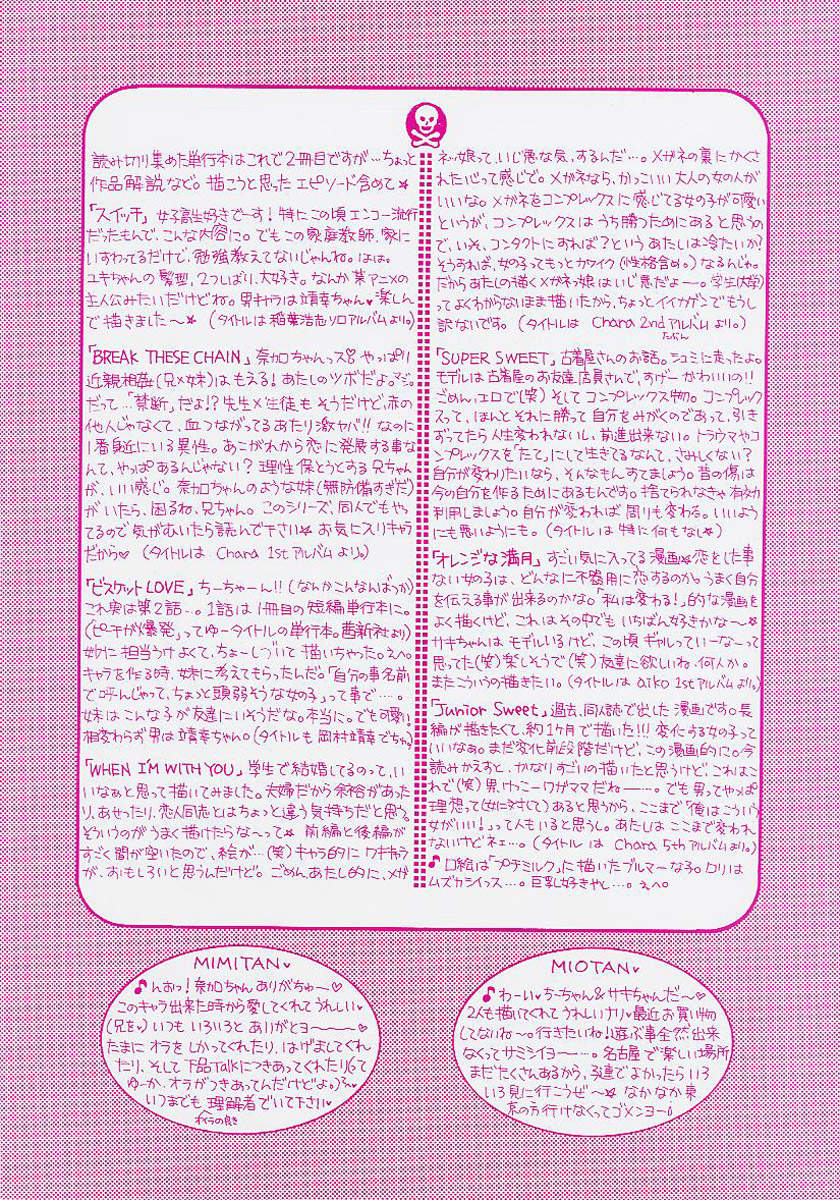 読み切り集めた単行本はこれで2冊目ですが…ちょっと
作品解説など。描こうと思ったエピソード含めて★
「スイッチ」女子高生好きでーす！特にこの頃エンコー流行
だったもんで、こんな内容に。でもこの家庭教師、家に
いすわってるだけで、勉強教えてないじゃんね。ほほ。
ユキちゃんの髪型、2つしばり、大好き。なんか某アニメの
主人公みたいだけどね。男キャラは靖幸ちゃん♥楽しん
で描きました〜★（タイトルは稲葉浩志ソロアルバムより。）
「BREAK THESE CHAIN」奈加ちゃんっス!! やっぱり
近親相姦(兄×妹)はもえる！あたしのツボだよ。マジ。
だって…「禁断」だよ!? 先生×生徒もそうだけど、赤の
他人じゃなくて、血つながってるあたり激ヤバ!! なのに
1番身近にいる異性。あこがれから恋に発展する事な
んて、やっぱあるんじゃない？理性保とうとする兄ちゃん
が、いい感じ。奈加ちゃんのような妹(無防備すぎだ)
がいたら、困るね、兄ちゃん。このシリーズ、同人でもや
てるので気がむいたら読んで下さい★お気に入りキャラ
だから♡（タイトルは Chara 1stアルバムより。）
「ビスケットLOVE」ちーちゃーん!!（なんかこんなんばっか）
これ実は第2話…。1話は1冊目の短編単行本に。
(「ピーチが爆発」ってゆータイトルの単行本。茜新社より)
妙に担当うけよくて、ちょーしづいて描いちゃった。えへ。
キャラを作る時、妹に考えてもらったんだ。「自分の事名前
で呼んじゃって、ちょっと頭弱そうな女の子」って事で…。
妹はこんな子が友達にいそうだな。本当に。でも可愛い。
相変わらず男は靖幸ちゃん。(タイトルも岡村靖幸でちゅ)
「WHEN I'M WITH YOU」学生で結婚してるのって、い
いなぁと思って描いてみました。夫婦だから余裕があった
り、あせったり、恋人同志とはちょっと違う気持ちだと思う。
そういうのがうまく描けたらな〜って★ 前編と後編が
すごく間が空いたので、絵が…(笑)キャラ的にワキキャラ
が、おもしろいと思うんだけど。ごめん、あたし的に、メガ
ネッ娘って、いじ悪な気、するんだ…。メガネの裏にかくさ
れた心って感じで。メガネなら、かっこいい大人の女の人が
いいな。メガネをコンプレックスに感じてる女の子が可愛い
というが、コンプレックスはうち勝つためにあると思うの
で、いっそ、コンタクトにすれば？というあたしは冷たいか？
そうすれば、女の子ってもっとカワイク(性格含め。)なるんじゃ。
だからあたしの描くメガネっ娘はいじ悪だよー。学生(大学)
ってよくわからないまま描いたから、ちょっとイイカゲンでもうし
訳ないです。（タイトルは Chara 2ndアルバムより。）
たぶん
「SUPER SWEET」古着屋さんのお話。シュミに走ったよ。
モデルは古着屋のお友達店員さんで、すげーかわいいの!!
ごめん、エロで(笑)そしてコンプレックス物。コンプレック
スって、ほんとそれに勝って自分をみがくのであって、引き
ずってたら人生変われないし、前進出来ない。トラウマやコ
ンプレックスを「たて」にして生きてるなんて、さみしくない？
自分が変わりたいなら、そんなもんすてましょう。昔の傷は
今の自分を作るためにあるもんです。捨てられなきゃ有効
利用しましょう。自分が変われば周りも変わる。いいよう
にも悪いようにも。（タイトルは特に何もなし★）
「オレンジな満月」すごい気に入ってる漫画★恋をした事
ない女の子は、どんなに不器用に恋するのか。うまく自分
を伝える事が出来るのかな。「私は変わる！」的な漫画を
よく描くけど、これはその中でもいちばん好きかな〜★
サキちゃんはモデルいるけど、この頃ギャルっていーな〜って
思ってた(笑)楽しそうで(笑)友達に欲しいね。何人か。
またこういうの描きたい。(タイトルは aiko 1stアルバムより。)
「Junior Sweet」過去、同人誌で出した漫画です。長
編が描きたくて、約1ヶ月で描いた!!! 変化する女の子って
いいなぁ。まだ変化前段階だけど、この漫画的に。今
読みかえすと、かなりすごいの描いたと思うけど、これはこ
れで(笑)男、けっこーワガママだねー…。でも男ってやっぱ
理想って(女に対して)あると思うから、ここまで「俺はこういう
女がいい！」って人もいると思うし。あたしはここまで変われ
ないけどネェ…。（タイトルは Chara 5thアルバムより。）
♪口絵は「プチミルク」に描いたブルマーな子。ロリは
ムズカシイっス…。巨乳好きやし…。えへ。
MIMITAN♥
♪んあっ！奈加ちゃんありがちゅ〜♡
このキャラ出来た時から愛してくれてうれしい♥
(兄を♥)いつもいろいろとありがとヨ〜〜♡
たまにオラをしかってくれたり、はげましてくれ
たり、そして下品Talkにつきあってくれたり(て
ゆーか、オラがつきあってんだけどよ。)
いつまでも理解者でいて下さい♥
オイラの良き
MIOTAN♥
♪わーい♥ちーちゃん&サキちゃんだ〜♡
2人も描いてくれてうれしいナリ♥最近お買い物
してないね〜。行きたいね！遊ぶ事全然出来
なくってサミシイヨー…。名古屋で楽しい場所
まだたくさんあるから、3連でよかったらいろ
いろ見に行こうぜ〜★ なかなか東
京の方行けなくってゴメンヨー